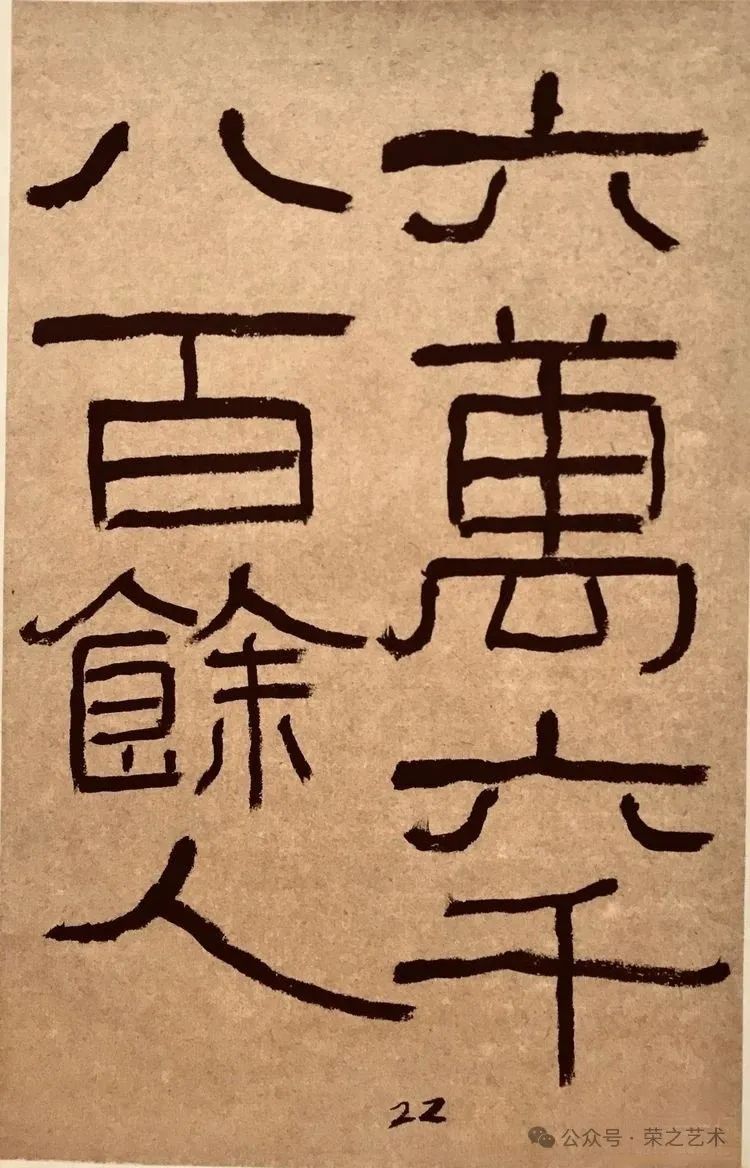 六萬六千
八百餘人
22
公众号·荣之艺术